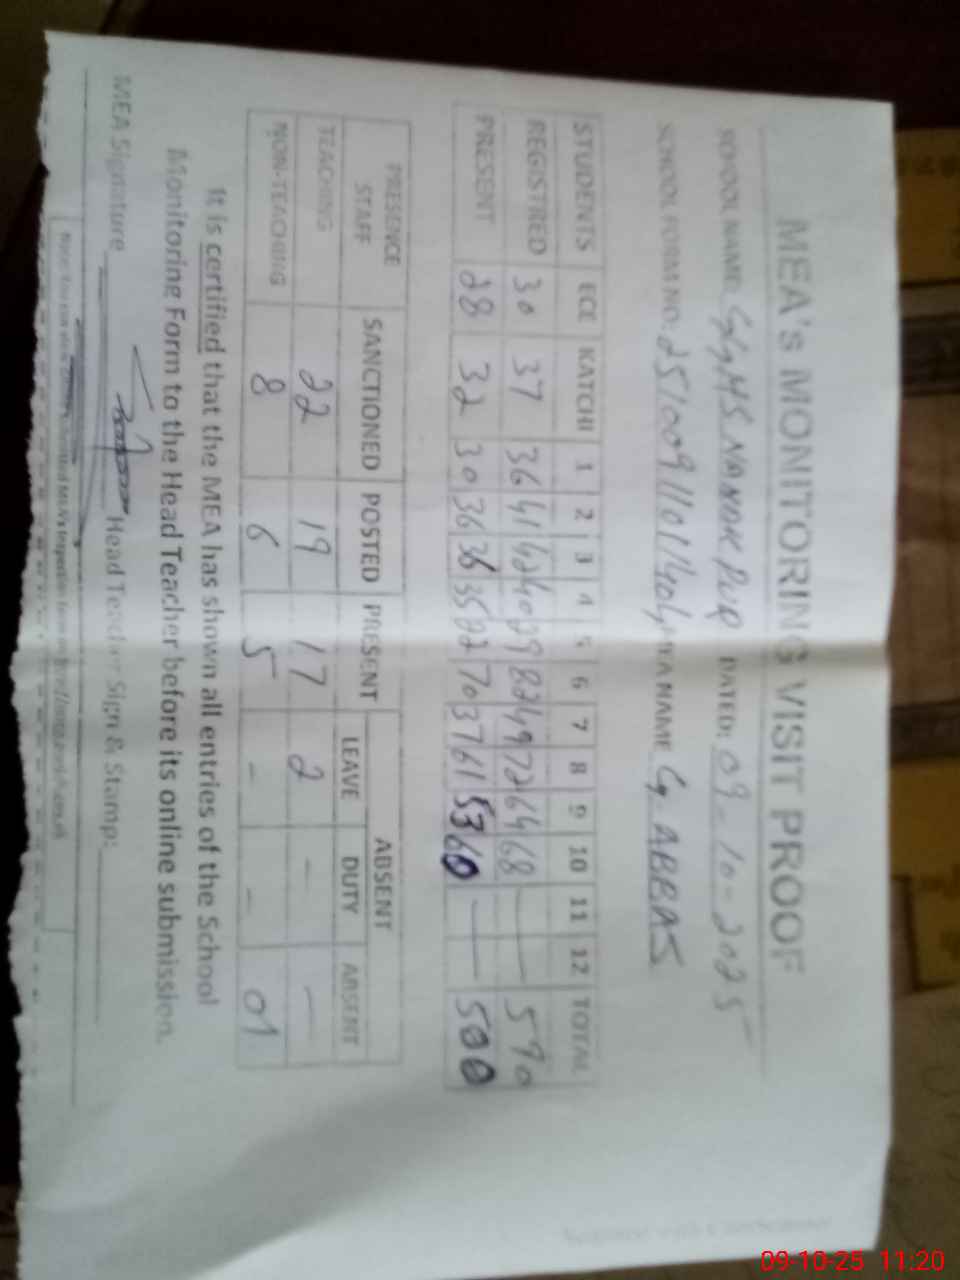 MEA's MONITORING VISIT PROOF
SCHOOL NAME: GGHS NANAK PUR DATED: 09-10-2025
SCHOOL FORM NO: MEA NAME G ABBAS
STUDENTS ECE KATCHI 1 2 3 4 5 6 7 8 9 10 11 12 TOTAL
REGISTRED 30 37 36 41 42 40 29 82 49 72 64 68 — 590
PRESENT 28 32 30 36 36 35 22 70 37 61 53 60 — 500
PRESENCE STAFF SANCTIONED POSTED PRESENT ABSENT
LEAVE DUTY ABSENT
TEACHING 22 19 17 2 – –
NON-TEACHING 8 6 5 – – 01
It is certified that the MEA has shown all entries of the School
Monitoring Form to the Head Teacher before its online submission.
MEA Signature Head Teacher Sign & Stamp:
09-10-25 11:20